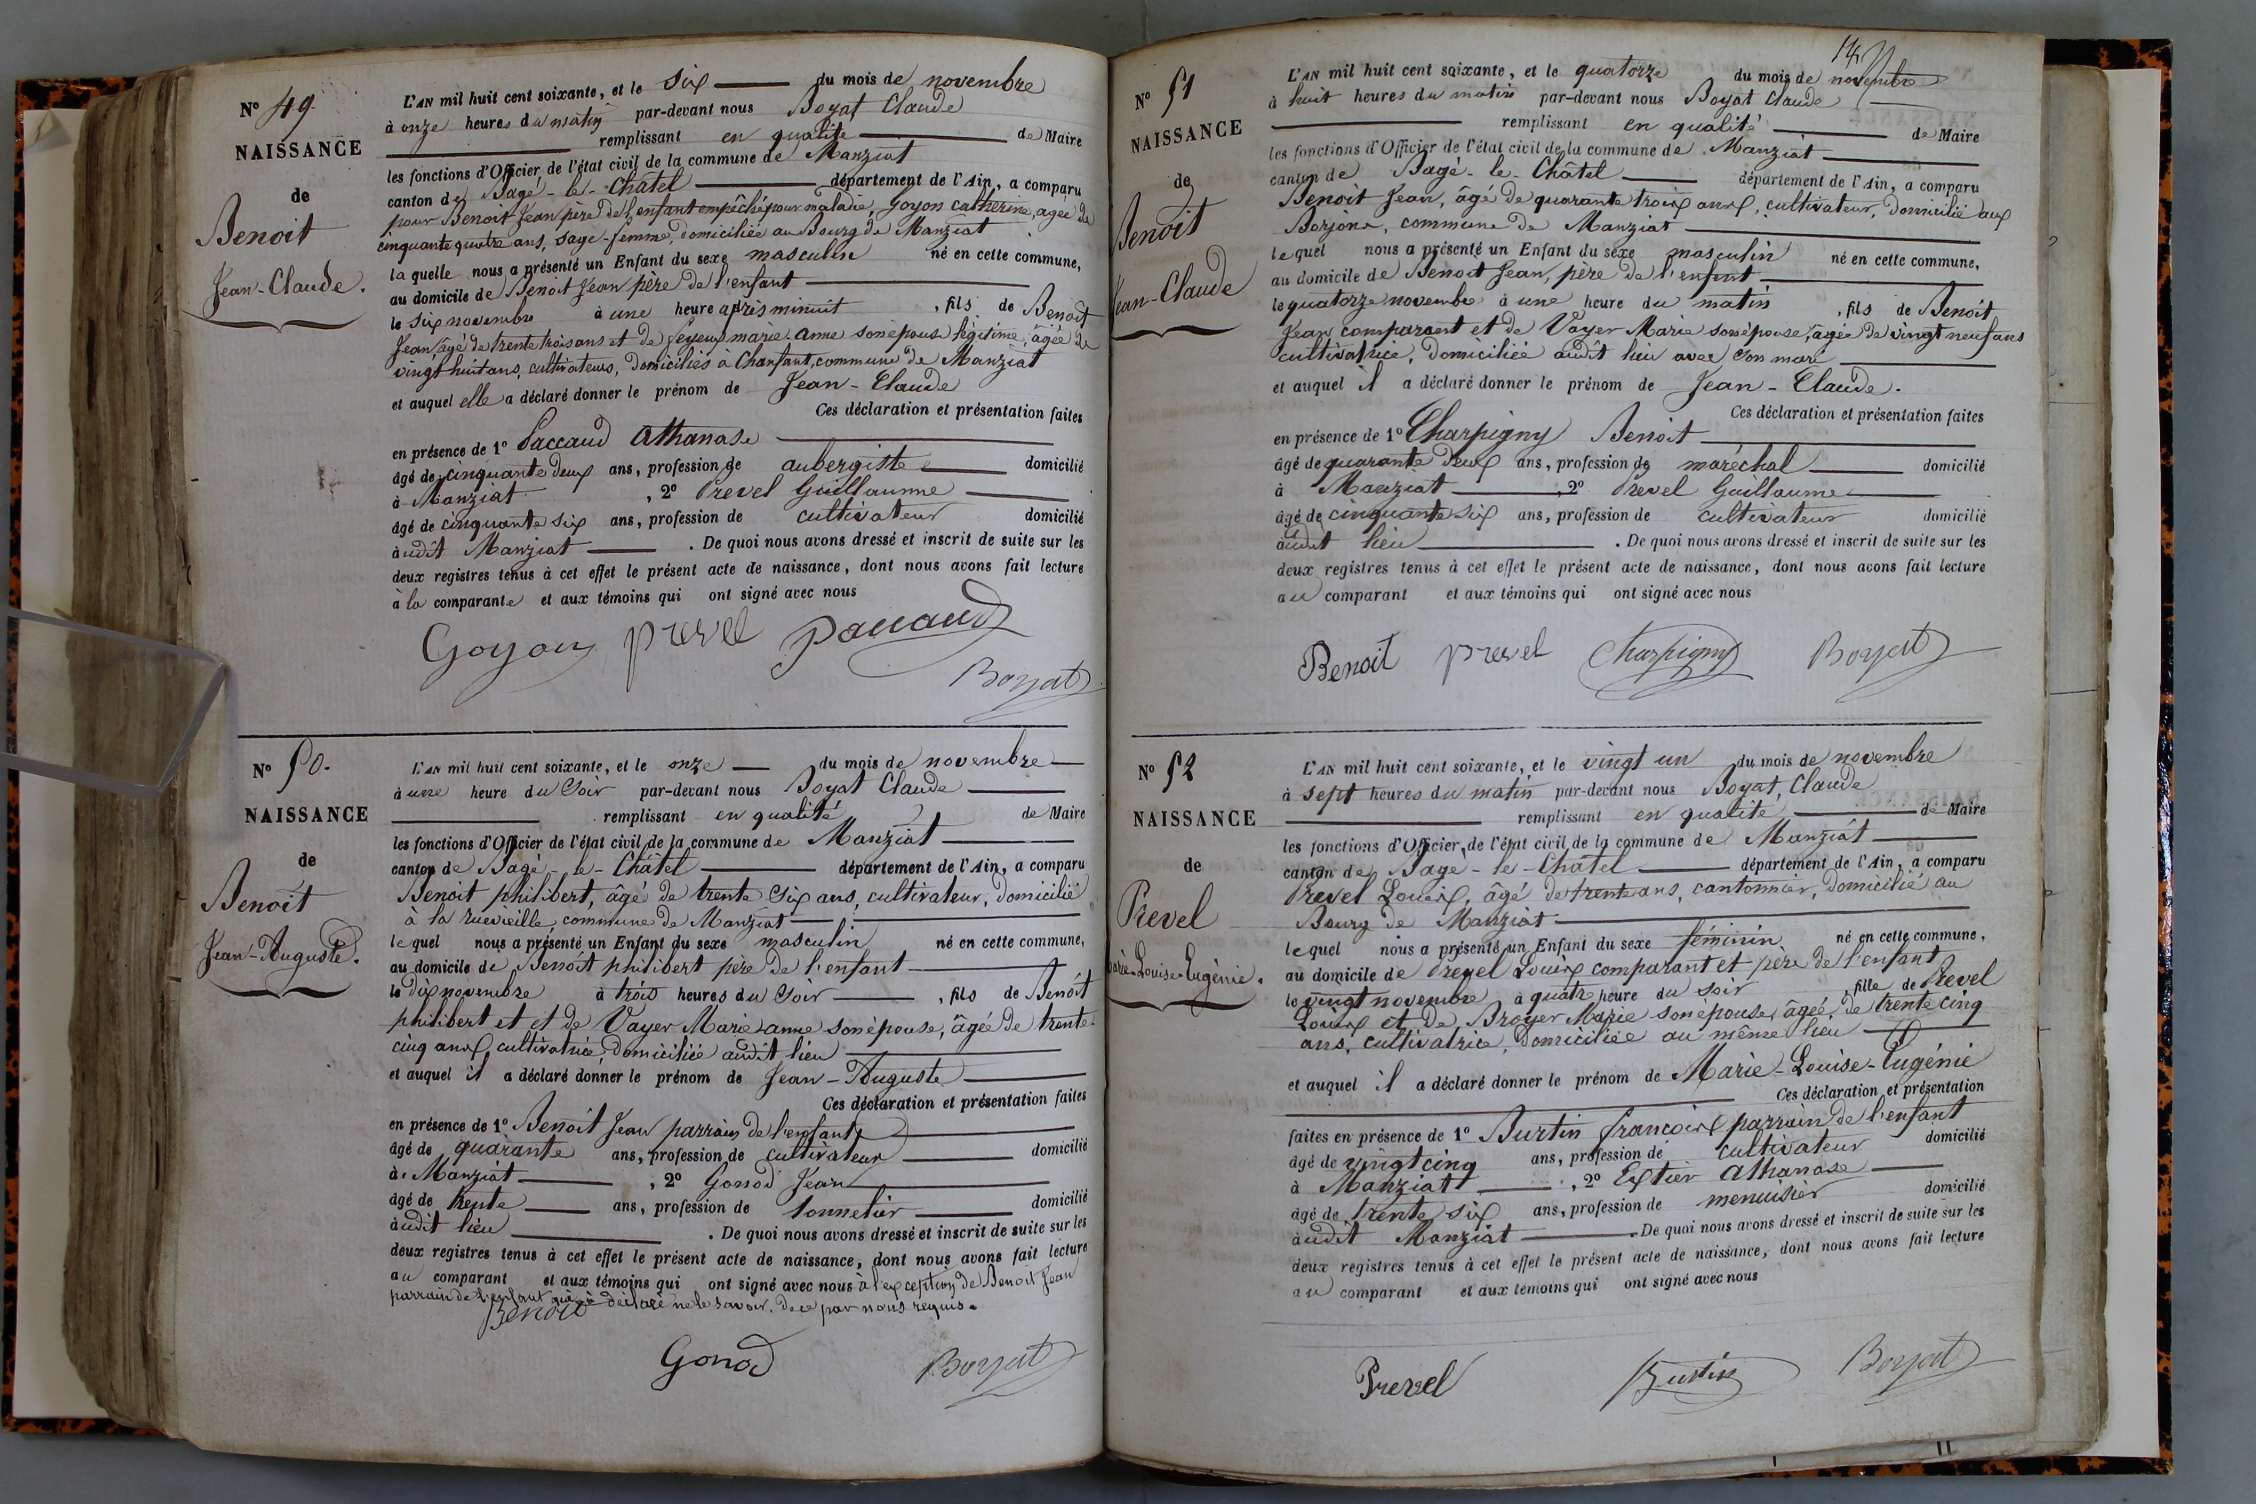 N° 49
NAISSANCE
de
Benoit
Jean-Claude.
L'AN mil huit cent soixante, et le six du mois de novembre
à onze heures du matin par-devant nous Boyat Claude
remplissant en qualité de Maire
les fonctions d'Officier de l'état civil de la commune de Manziat
canton de Bagé-le-Châtel département de l'Ain, a comparu
pour Benoit Jean père de l'enfant empêché pour maladie, Goyon Catherine, agée de
cinquante quatre ans, sage-femme, domiciliée au Bourg de Manziat
la quelle nous a présenté un Enfant du sexe masculin né en cette commune,
au domicile de Benoit Jean père de l'enfant
le six novembre à une heure après minuit, fils de Benoit
Jean, âgé de trente trois ans et de Feyeux marie-anne son épouse légitime, âgée de
vingt huit ans, cultivateurs, domiciliés à Chanfant, commune de Manziat
et auquel elle a déclaré donner le prénom de Jean-Claude
Ces déclaration et présentation faites
en présence de 1° Paccaud Athanase
âgé de cinquante deux ans, profession de aubergiste domicilié
à Manziat, 2° Prevel Guillaume
âgé de cinquante six ans, profession de cultivateur domicilié
audit Manziat. De quoi nous avons dressé et inscrit de suite sur les
deux registres tenus à cet effet le présent acte de naissance, dont nous avons fait lecture
à la comparante et aux témoins qui ont signé avec nous
Goyon prevel Paccaud
Boyat
N° 50.
NAISSANCE
de
Benoit
Jean-Auguste.
L'AN mil huit cent soixante, et le onze du mois de novembre
à une heure du Soir par-devant nous Boyat Claude
remplissant en qualité de Maire
les fonctions d'Officier de l'état civil de la commune de Manziat
canton de Bagé-le-Châtel département de l'Ain, a comparu
Benoit philibert, âgé de trente six ans, cultivateur, domicilié
à la rue vieille, commune de Manziat
lequel nous a présenté un Enfant du sexe masculin né en cette commune,
au domicile de Benoit philibert père de l'enfant
le dix novembre à trois heures du Soir, fils de Benoit
philibert et et de Vayer Marie-anne son épouse, âgée de trente-
cinq ans, cultivatrice, domiciliée audit lieu
et auquel il a déclaré donner le prénom de Jean-Auguste
Ces déclaration et présentation faites
en présence de 1° Benoit Jean parrain de l'enfant
âgé de quarante ans, profession de cultivateur domicilié
à Manziat, 2° Gonod Jean
âgé de trente ans, profession de tonnelier domicilié
audit lieu. De quoi nous avons dressé et inscrit de suite sur les
deux registres tenus à cet effet le présent acte de naissance, dont nous avons fait lecture
au comparant et aux témoins qui ont signé avec nous à l'exception de Benoit Jean
parrain de l'enfant qui a déclaré ne le savoir. de ce par nous requis.
Benoit
Gonod Boyat
N° 51
NAISSANCE
de
Benoit
Jean-Claude
L'AN mil huit cent soixante, et le quatorze du mois de novembre
à huit heures du matin par-devant nous Boyat Claude
remplissant en qualité de Maire
les fonctions d'Officier de l'état civil de la commune de Manziat
canton de Bagé-le-Châtel département de l'Ain, a comparu
Benoit Jean, âgé de quarante trois ans, cultivateur, domicilié aux
Borjons, commune de Manziat
lequel nous a présenté un Enfant du sexe masculin né en cette commune,
au domicile de Benoit Jean, père de l'enfant
le quatorze novembre à une heure du matin, fils de Benoit
Jean comparant et de Voyer Marie son épouse, âgée de vingt neuf ans
cultivatrice, domiciliée audit lieu avec son mari
et auquel il a déclaré donner le prénom de Jean-Claude.
Ces déclaration et présentation faites
en présence de 1° Charpigny Benoit
âgé de quarante deux ans, profession de maréchal domicilié
à Manziat, 2° Prevel Guillaume
âgé de cinquante six ans, profession de cultivateur domicilié
audit lieu. De quoi nous avons dressé et inscrit de suite sur les
deux registres tenus à cet effet le présent acte de naissance, dont nous avons fait lecture
au comparant et aux témoins qui ont signé avec nous
Benoit prevel Charpigny Boyat
N° 52
NAISSANCE
de
Prevel
Marie-Louise-Eugénie.
L'AN mil huit cent soixante, et le vingt un du mois de novembre
à sept heures du matin par-devant nous Boyat, Claude
remplissant en qualité de Maire
les fonctions d'Officier de l'état civil de la commune de Manziat
canton de Bagé-le-Châtel département de l'Ain, a comparu
Prevel Louis, âgé de trente ans, cantonnier, domicilié au
Bourg de Manziat
lequel nous a présenté un Enfant du sexe féminin né en cette commune,
au domicile de Prevel Louis comparant et père de l'enfant
le vingt novembre à quatre heure du soir, fille de Prevel
Louis et de Broyer Marie son épouse, âgée de trente cinq
ans, cultivatrice, domiciliée au même lieu
et auquel il a déclaré donner le prénom de Marie-Louise-Eugénie
Ces déclaration et présentation
faites en présence de 1° Burtin francois parrain de l'enfant
âgé de vingt cinq ans, profession de cultivateur domicilié
à Manziat, 2° Extier Athanase
âgé de trente six ans, profession de menuisier domicilié
audit Manziat. De quoi nous avons dressé et inscrit de suite sur les
deux registres tenus à cet effet le présent acte de naissance, dont nous avons fait lecture
au comparant et aux témoins qui ont signé avec nous
Prevel Burtin Boyat